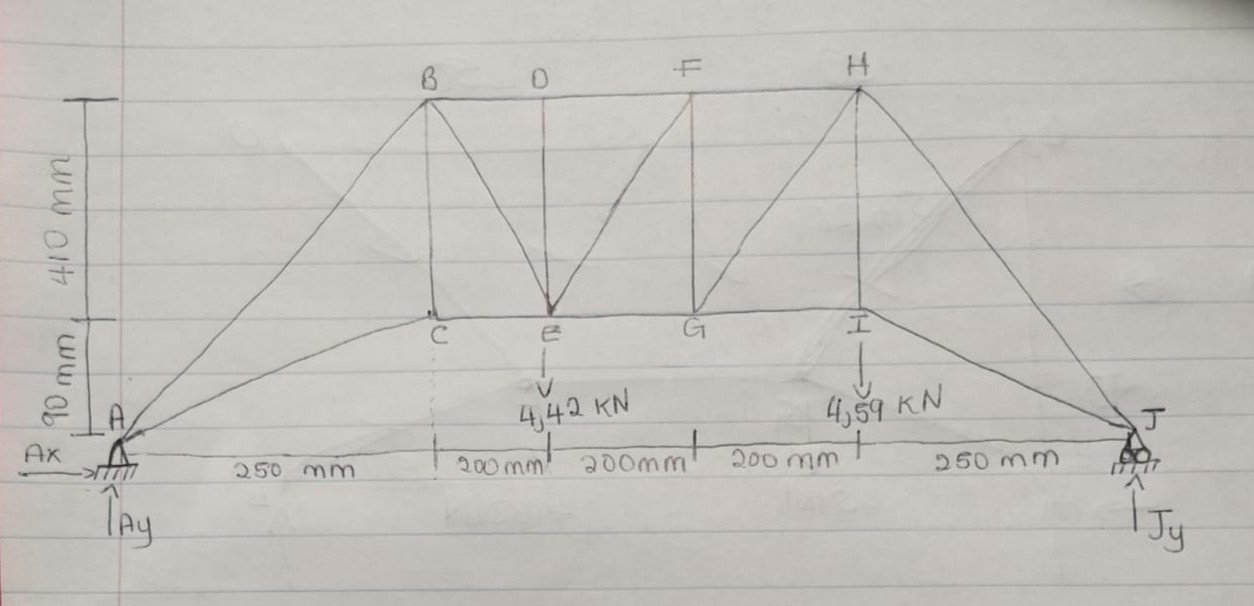 B D F H
410 mm
90 mm
C E G I
4,42 KN 4,59 KN
A J
Ax
250 mm 200 mm 200mm 200 mm 250 mm
Ay Jy